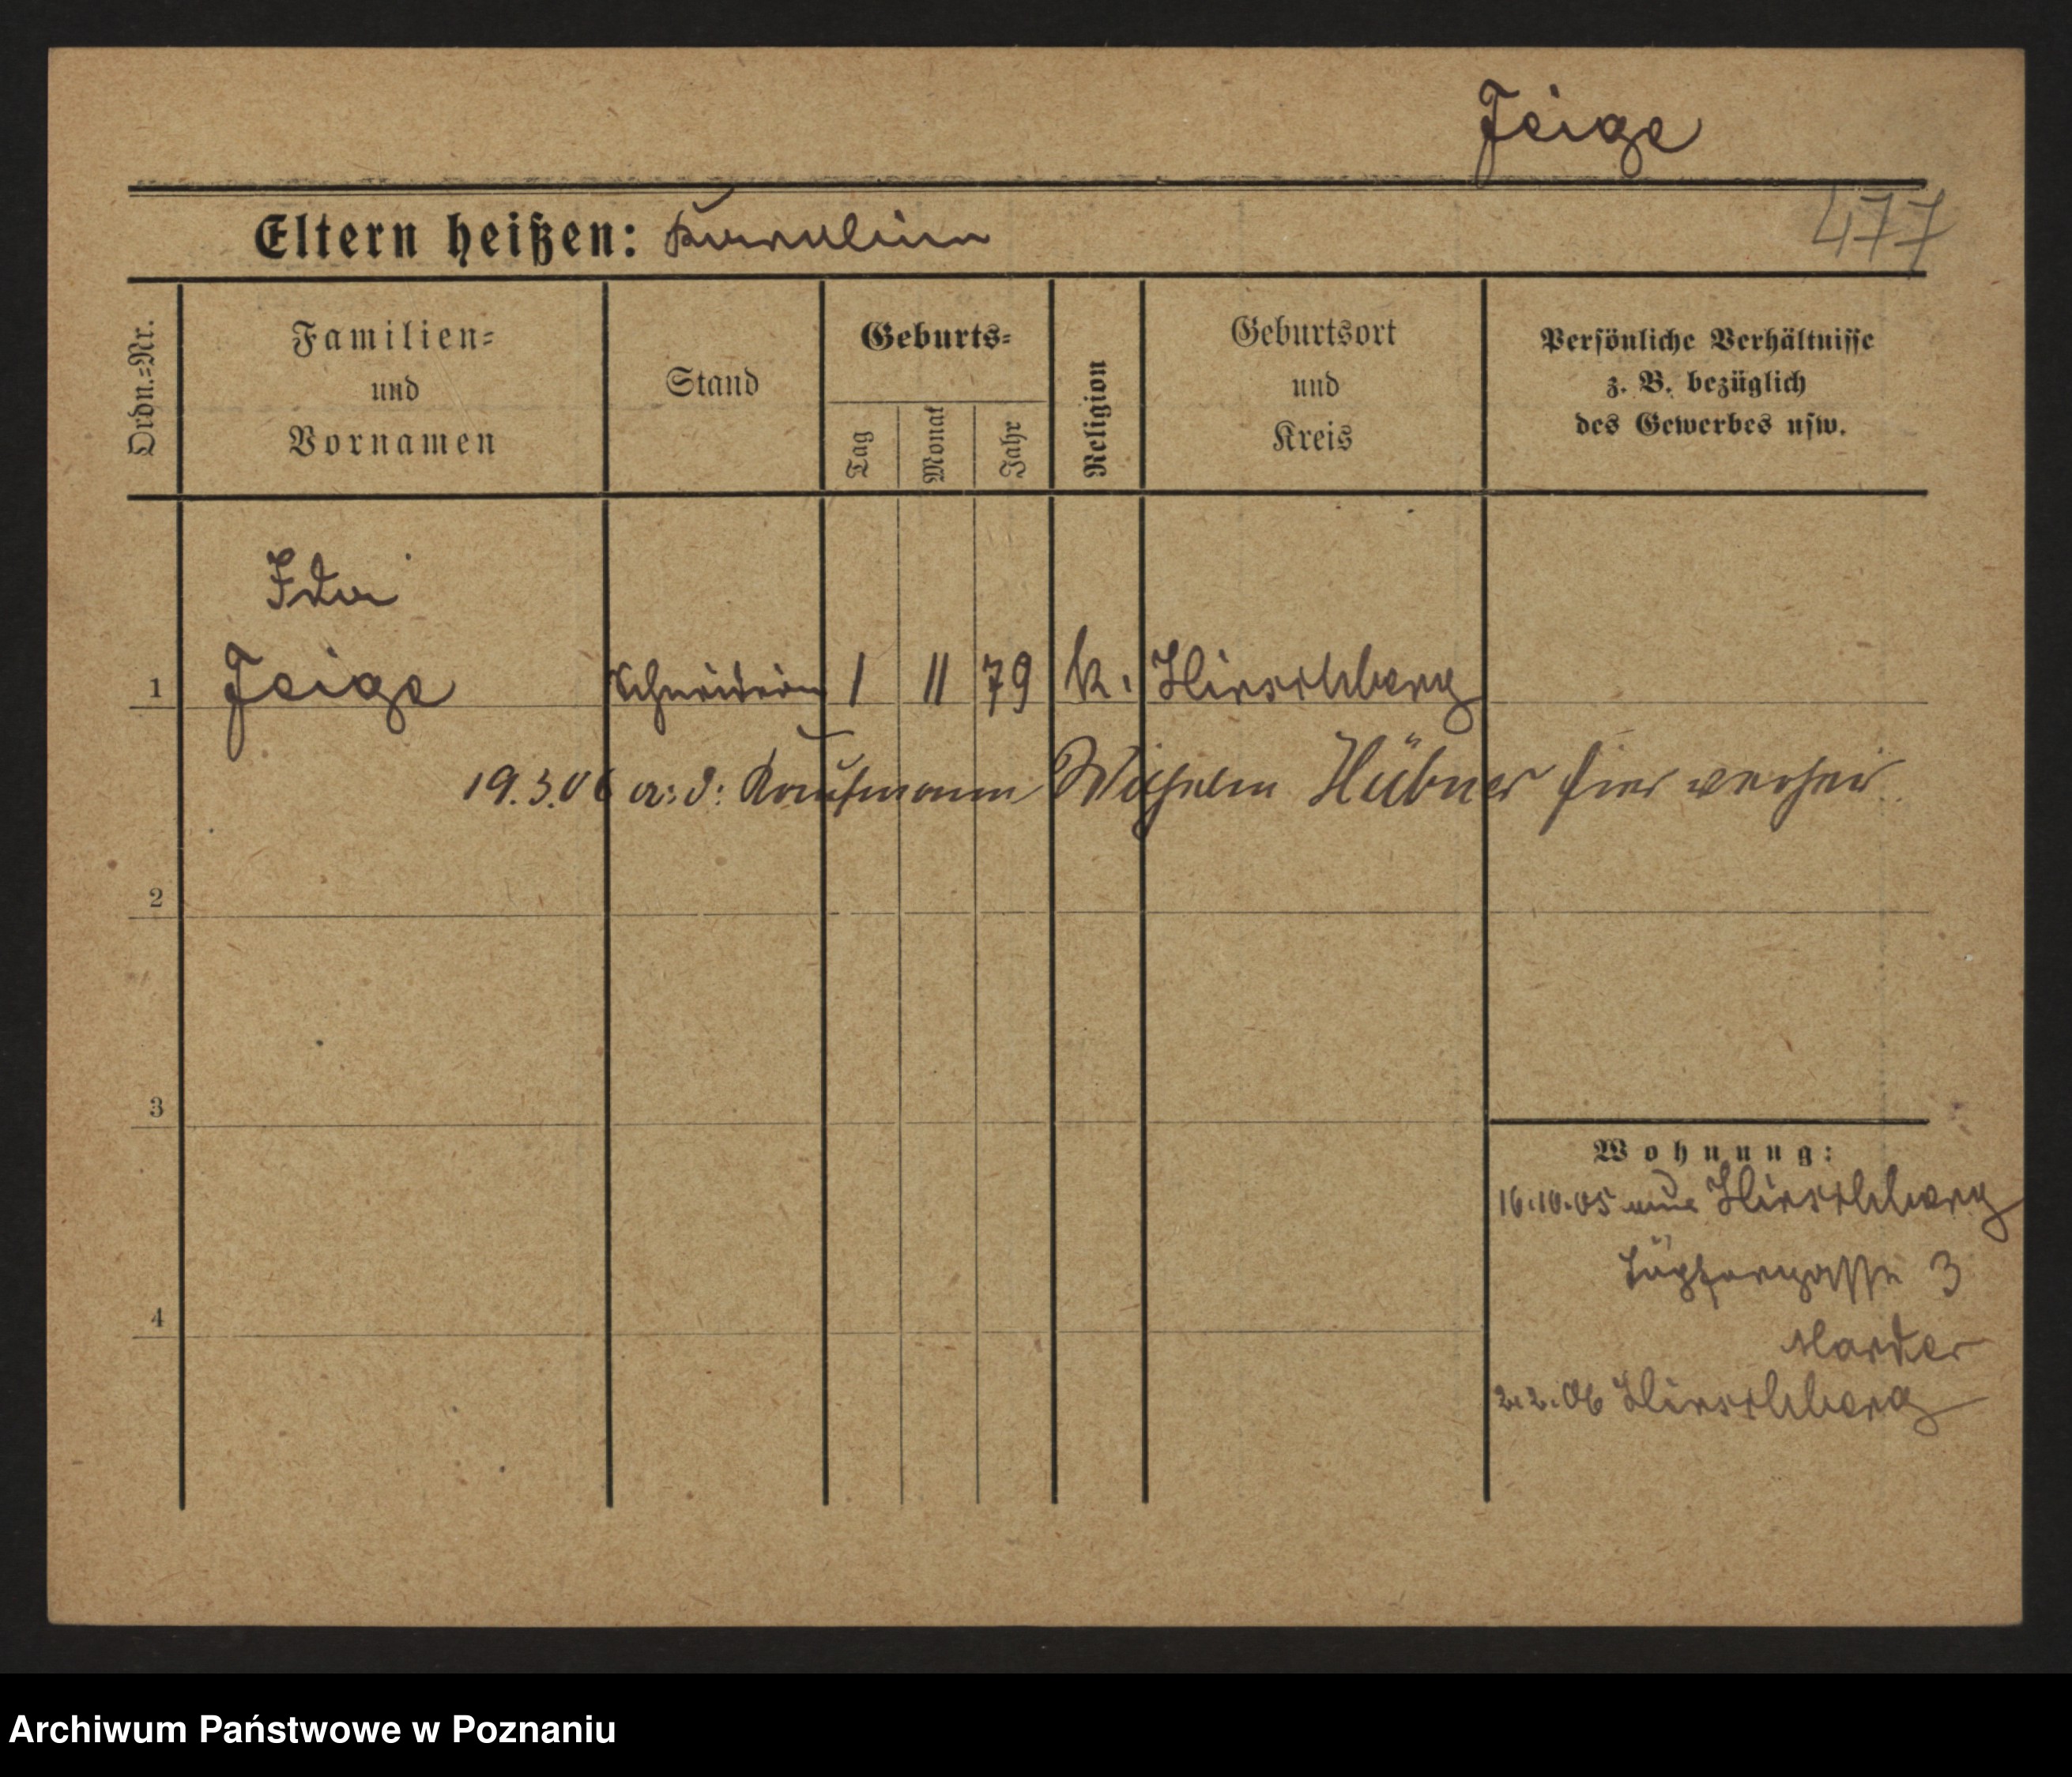 Feige
477
Eltern heißen: Karoline
Ordn.=Nr.
Familien=
und
Vornamen
Stand
Geburts=
Tag
Monat
Jahr
Religion
Geburtsort
und
Kreis
Persönliche Verhältnisse
z. B. bezüglich
des Gewerbes usw.
Ida
1 Feige Schneiderin 1 11 79 k. Hirschberg
19.3.06 a: d: Kaufmann Wilhelm Hübner hier verheir.
2
3
4
Wohnung:
16.10.05 aus Hirschberg
Töpfergasse 3
Harder
2.2.06 Hirschberg
Archiwum Państwowe w Poznaniu